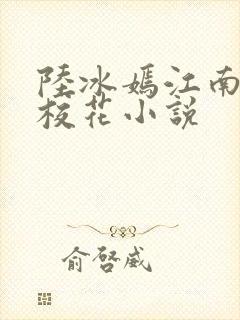 陸冰嫣江南
校花小說
俞啓威